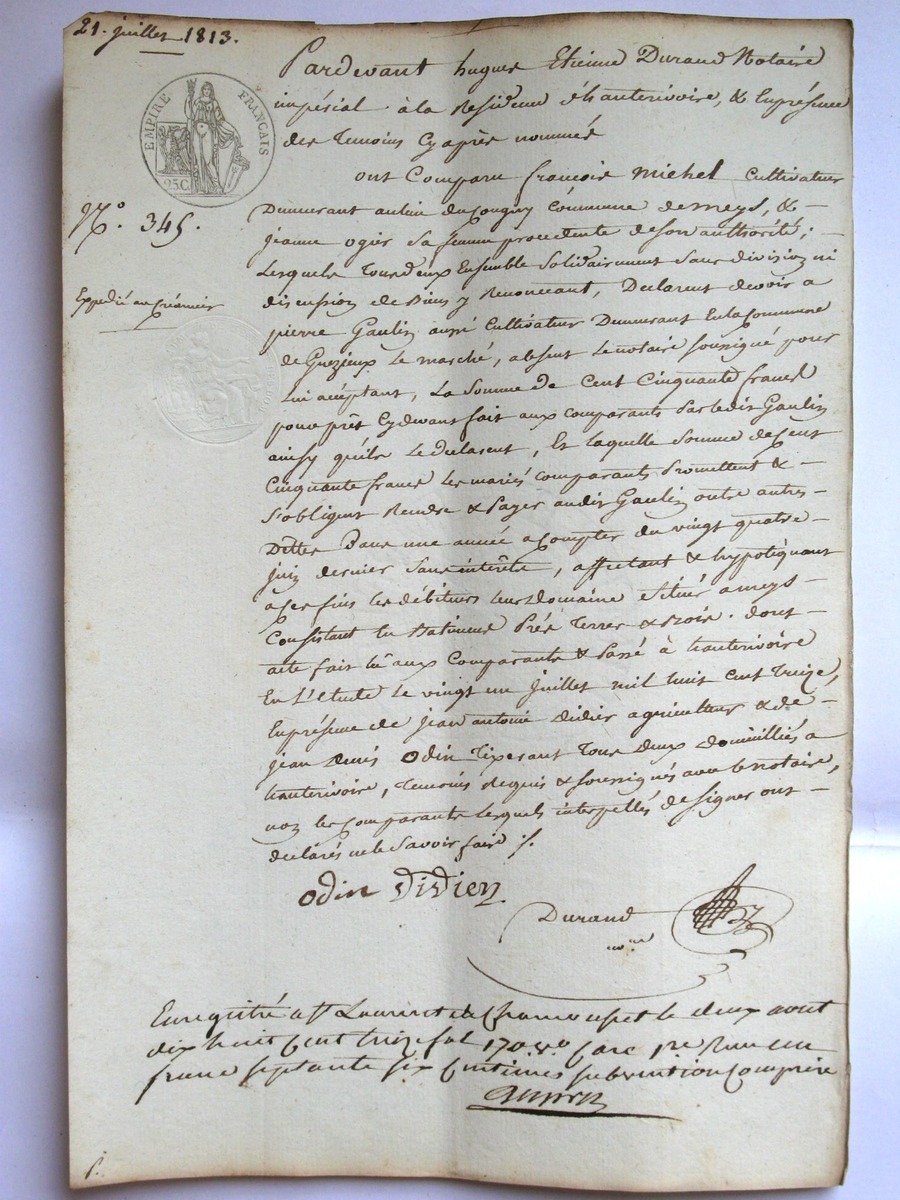 21. juillet 1813.
EMPIRE FRANÇAIS
25 C.
N.º 345.
Expedié au Créancier
Pardevant hugues Etienne Durand Notaire
impérial à la Residence d'hauterivoire, & En présence
des Temoins Cy après nommés
ont Comparu françois Michel Cultivateur
Demeurant au lieu du Cougny Commune de meys, &
jeanne ogier Sa femme procedente de Son authorité;
Lesquels Tous deux Ensemble Solidairement Sans division ni
discussion de Biens y Renonceant, Declarent devoir a
pierre Gaulin aussi Cultivateur Demeurant En la Commune
de Grezieux Le marché, absent Le notaire Soussigné pour
Lui acceptant, La Somme de Cent Cinquante francs
pour prêt Cy devant fait aux comparants Par ledit Gaulin
ainsy qu'ils Le declarent, Et laquelle Somme de Cent
Cinquante francs les mariés comparants Promettent &
S'obligent Rendre & Payer audit Gaulin outre autres
Dettes Dans une année a Compter du vingt quatre
juin dernier Sans interêts, affectant & hypotéquant
a Ces fins les débiteurs leur Domaine Situé a meys
Consistant En Batimens Prés Terres & Bois. dont
acte fait lû aux Comparants & Passé à hauterivoire
En L'etude Le vingt un juillet mil huit Cent Treize,
En présence de jean antoine Didier agriculteur & de
jean Denis Odin Tixerant Tous deux domiciliés a
hauterivoire, Temoins Requis & Soussignés avec le notaire,
non les Comparants Lesquels interpellés de Signer ont
declarés ne le Savoir faire ./.
odin Didier
Durand
nre
Enregistré a St Laurent de Chamousset le deux aout
dix huit Cent treize fol 170 vo Case 1re Reçu un
franc septante six Centimes subvention Comprise